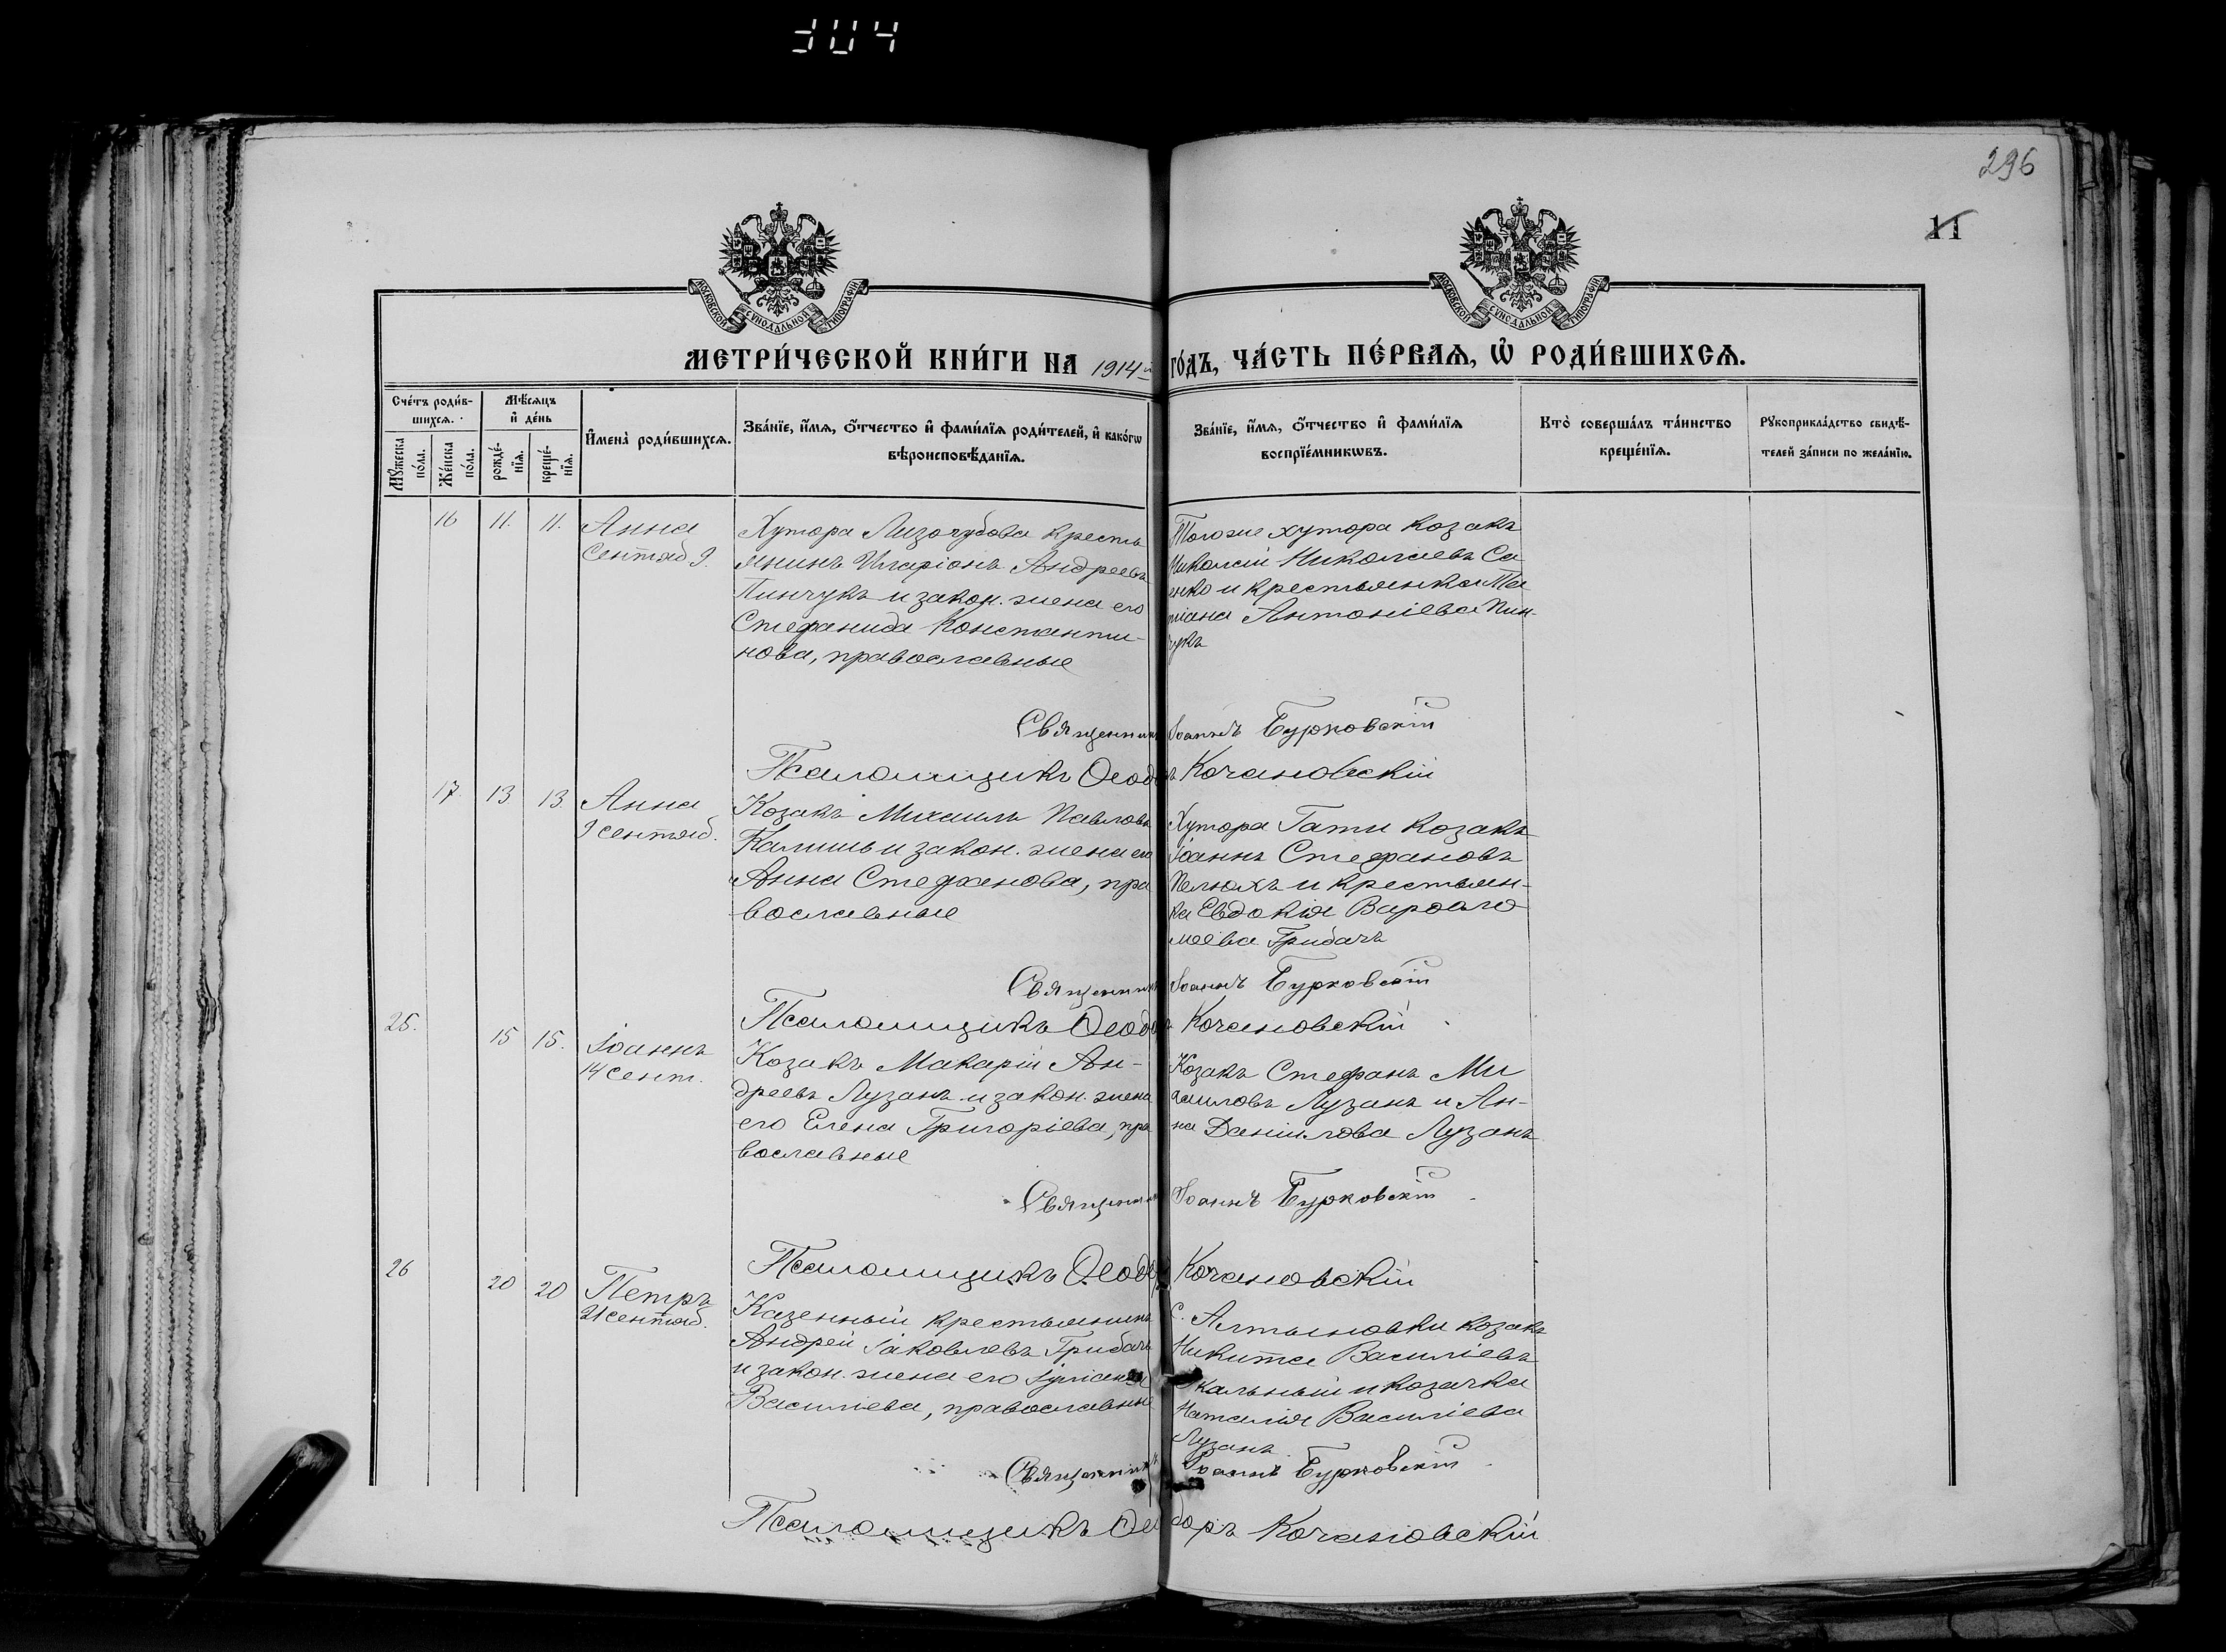 304
296
11
МОСКОВСКОЙ СУНОДАЛЬНОЙ ТИПОГРАФІИ
МОСКОВСКОЙ СУНОДАЛЬНОЙ ТИПОГРАФІИ
МЕТРИ́ЧЕСКОЙ КНИ́ГИ НА 1914й ГО́ДЪ, ЧА́СТЬ ПЕ́РВАѦ, Ѡ҆ РОДИ́ВШИХСѦ.
Сче́тъ роди́в-
шихсѧ.
Мꙋ́жеска по́ла.
Же́нска по́ла.
Мѣ́сѧцъ
и҆ де́нь
рожде́-
нїѧ.
креще́-
нїѧ.
И҆мена̀ роди́вшихсѧ.
Зва́нїе, и҆́мѧ, ѻ҆́тчество и҆ фами́лїѧ роди́телей, и҆ како́гѡ
вѣроисповѣ́данїѧ.
Зва́нїе, и҆́мѧ, ѻ҆́тчество и҆ фами́лїѧ
воспрїе́мникѡвъ.
Кто̀ соверша́лъ та́инство
креще́нїѧ.
Рꙋкоприкла́дство свидѣ́-
телей за́писи по жела́нїю.
16 11. 11. Анна
Сентяб 9.
Хутора Лизогубова кресть
янинъ Иларіонъ Андреевъ
Пинчукъ и закон. жена его
Стефанида Константи-
нова, православные
Тогоже хутора козакъ
Николай Николаевъ Са
енко и крестьянка Та
тіана Антоніева Пин-
чукъ
Священникъ Іоаннъ Бурковскій
Псаломщикъ Ѳеодоръ Кочановскій
17. 13 13. Анна
9 сентяб.
Козакъ Михаилъ Павловъ
Калишъ и закон. жена его
Анна Стефанова, пра
вославные
Хутора Гати козакъ
Іоаннъ Стефановъ
Пелюхъ и крестьян-
ка Евдокія Варѳоло
меева Грибачъ
Священникъ Іоаннъ Бурковскій
Псаломщикъ Ѳеодоръ Кочановскій
25. 15 15. Іоаннъ
14 сент.
Козакъ Макарій Ан-
дреевъ Лузанъ и закон. жена
его Елена Григоріева, пра
вославные
Козакъ Стефанъ Ми
хаиловъ Лузанъ и Ан-
на Даніилова Лузанъ
Священникъ Іоаннъ Бурковскій
Псаломщикъ Ѳеодоръ Кочановскій
26 20 20 Петръ
21 сентяб.
Казенный крестьянинъ
Андрей Іаковлевъ Грибачъ
и закон. жена его Іуліанія
Василіева, православные
С. Алтыновки козакъ
Никита Василіевъ
и козачка
Наталія Василіева
Лузанъ
Священникъ Іоаннъ Бурковскій
Псаломщикъ Ѳеодоръ Кочановскій